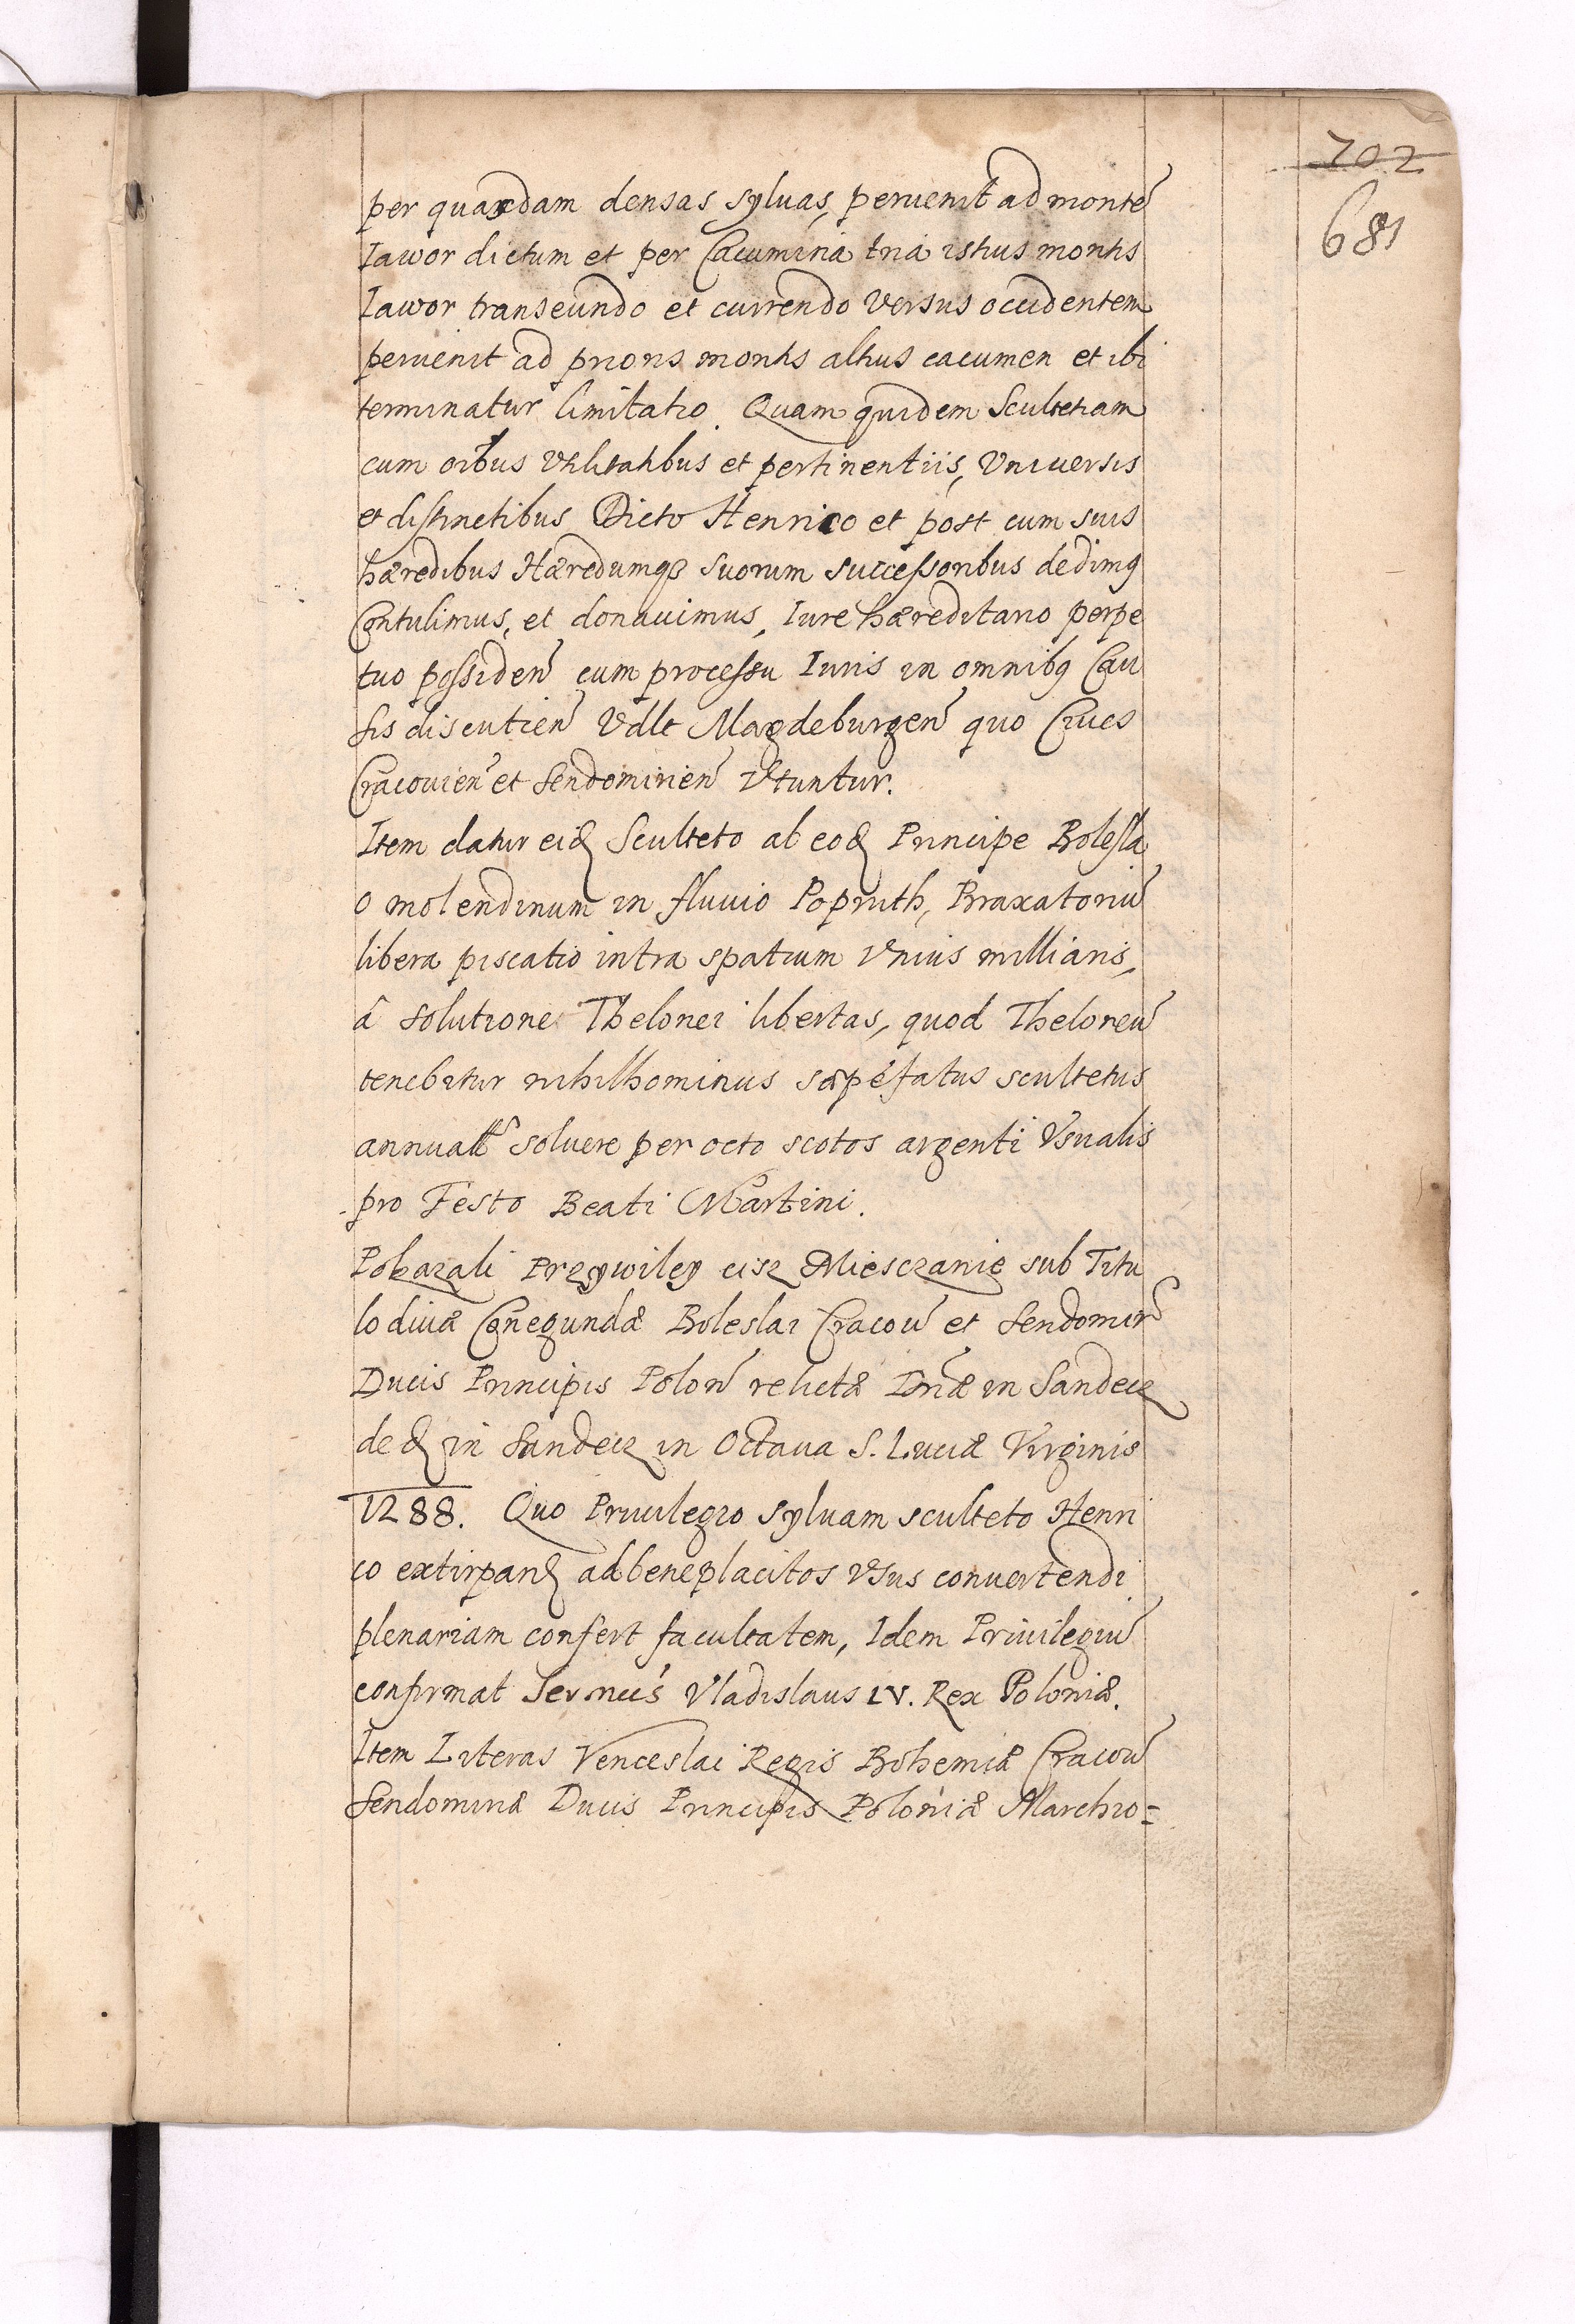 702
681
per quandam densas sylvas, peruenit ad montē
Iawor dictum et per Cacumina tria istius montis
Iawor transeundo et currendo versus occidentem
peruenit ad prioris montis altius cacumen et ibi
terminatur limitatio. Quam quidem Scultetiam
cum oībus vtilitatibus et pertinentiis, Vniuersis
et distinctibus Dicto Henrico et post eum suis
hæredibus Hæredumqꝫ suorum successoribus dedimꝰ
Contulimus, et donauimus, Iure hæreditario perpe
tuo possideñ cum processu Iuris in omnibꝰ Cau
sis discutieñ Vdlt Magdeburgeñ quo Ciues
Cracouieñ et Sendomirieñ Vtuntur.
Item datur eiđ Sculteto ab eođ Principe Bolesla
o molendinum in fluuio Popruth, Braxatoriū
libera piscatio intra spatium vnius milliaris,
â solutione Thelonei libertas, quod Theloneū
tenebitur nihilhominus sæpefatus scultetus
annuatē soluere per octo scotos argenti Vsualis
pro Festo Beati Martini.
Pokazali Przywiley cisz Miesczanie sub Titu
lo diuæ Conegundæ Boleslai Cracoū et Sendomir̃
Ducis Principis Poloñ relictæ Dnæ in Sandecz
de đ in Sandecz in Octaua S. Luciæ Virginis
1288. Quo Priuilegio sylvam sculteto Henri
co extirpanđ ad beneplacitos vsus conuertendi
plenariam confert facultatem, Idem Priuilegiū
confirmat Sermus Vladislaus IV. Rex Poloniæ.
Item Literas Venceslai Regis Bohemiæ Cracoū
Sendomiriæ Ducis Principis Poloniæ Marchio=